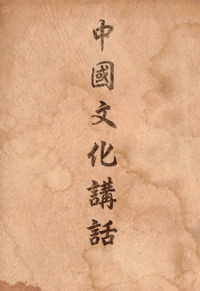 中國文化講話